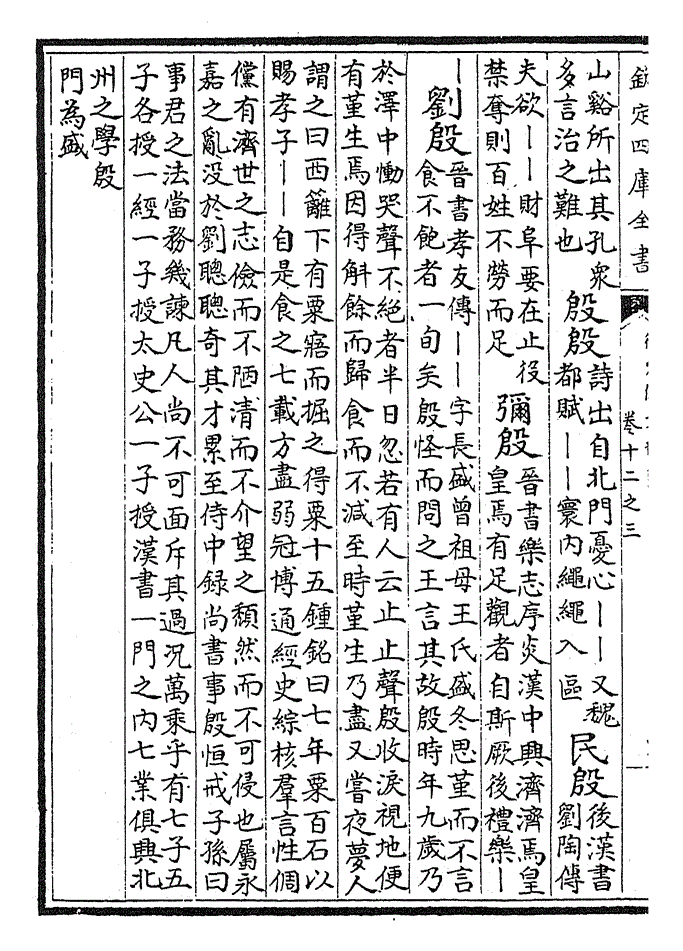 欽定四庫全書
卷十二之三
山谿所出其孔眾
多言治之難也
殷殷
詩出自北門憂心丨丨又魏
都賦丨丨寰内繩繩入區
民殷
後漢書
劉陶傳
夫欲丨丨財阜要在止役
禁奪則百姓不勞而足
彌殷
晉書樂志序炎漢中興濟濟焉皇
皇焉有足觀者自斯厥後禮樂丨
丨
劉殷
晉書孝友傳丨丨字長盛曾祖母王氏盛冬思堇而不言
食不飽者一旬矣殷怪而問之王言其故殷時年九歲乃
於澤中慟哭聲不絕者半日忽若有人云止止聲殷收淚視地便
有堇生焉因得斛餘而歸食而不減至時堇生乃盡又嘗夜夢人
謂之曰西籬下有粟寤而掘之得粟十五鍾銘曰七年粟百石以
賜孝子丨丨自是食之七載方盡弱冠博通經史綜核羣言性倜
儻有濟世之志儉而不陋清而不介望之頽然而不可侵也屬永
嘉之亂没於劉聰聰奇其才累至侍中録尚書事殷恒戒子孫曰
事君之法當務幾諫凡人尚不可面斥其過况萬乘乎有七子五
子各授一經一子授太史公一子授漢書一門之内七業俱興北
州之學殷
門為盛